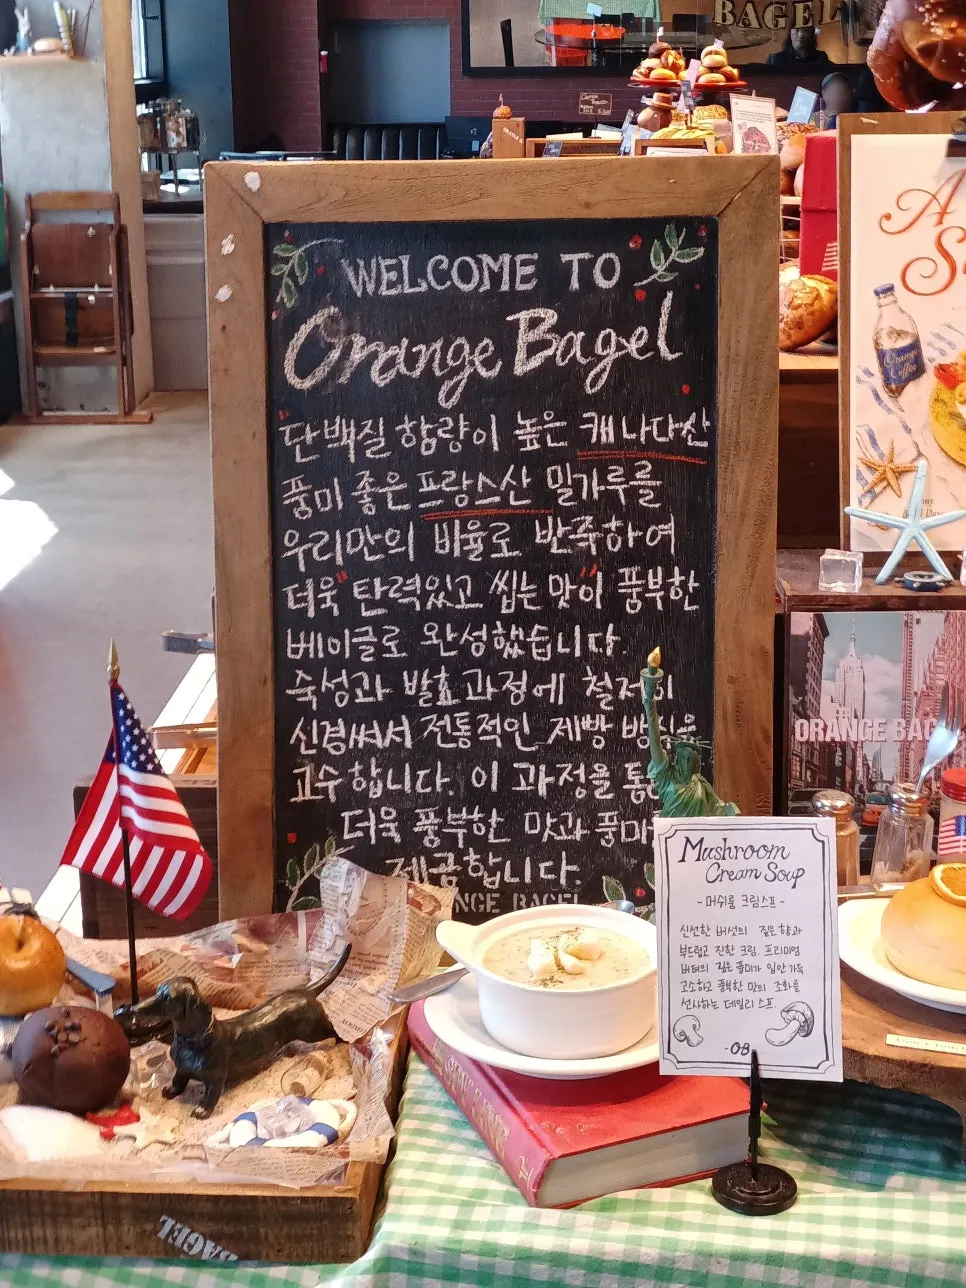 BAGEL
WELCOME TO
Orange Bagel
단백질 함량이 높은 캐나다산
풍미 좋은 프랑스산 밀가루를
우리만의 비율로 반죽하여
더욱 "탄력있고 씹는 맛"이 풍부한
베이글로 완성했습니다.
숙성과 발효과정에 철저히
신경써서 전통적인 제빵 방식을
고수합니다. 이 과정을 통
더욱 풍부한 맛과 풍미
제공합니다.
NGE BAGEL
Orange
Coffee
ORANGE BAG
Mushroom
Cream Soup
- 머쉬룸 크림스프 -
신선한 버섯의 짙은 향과
부드럽고 진한 크림, 프리미엄
버터의 깊은 풍미가 입안 가득
고소하고 풍부한 맛의 조화를
선사하는 데일리 스프.
-OB-
BAGEL